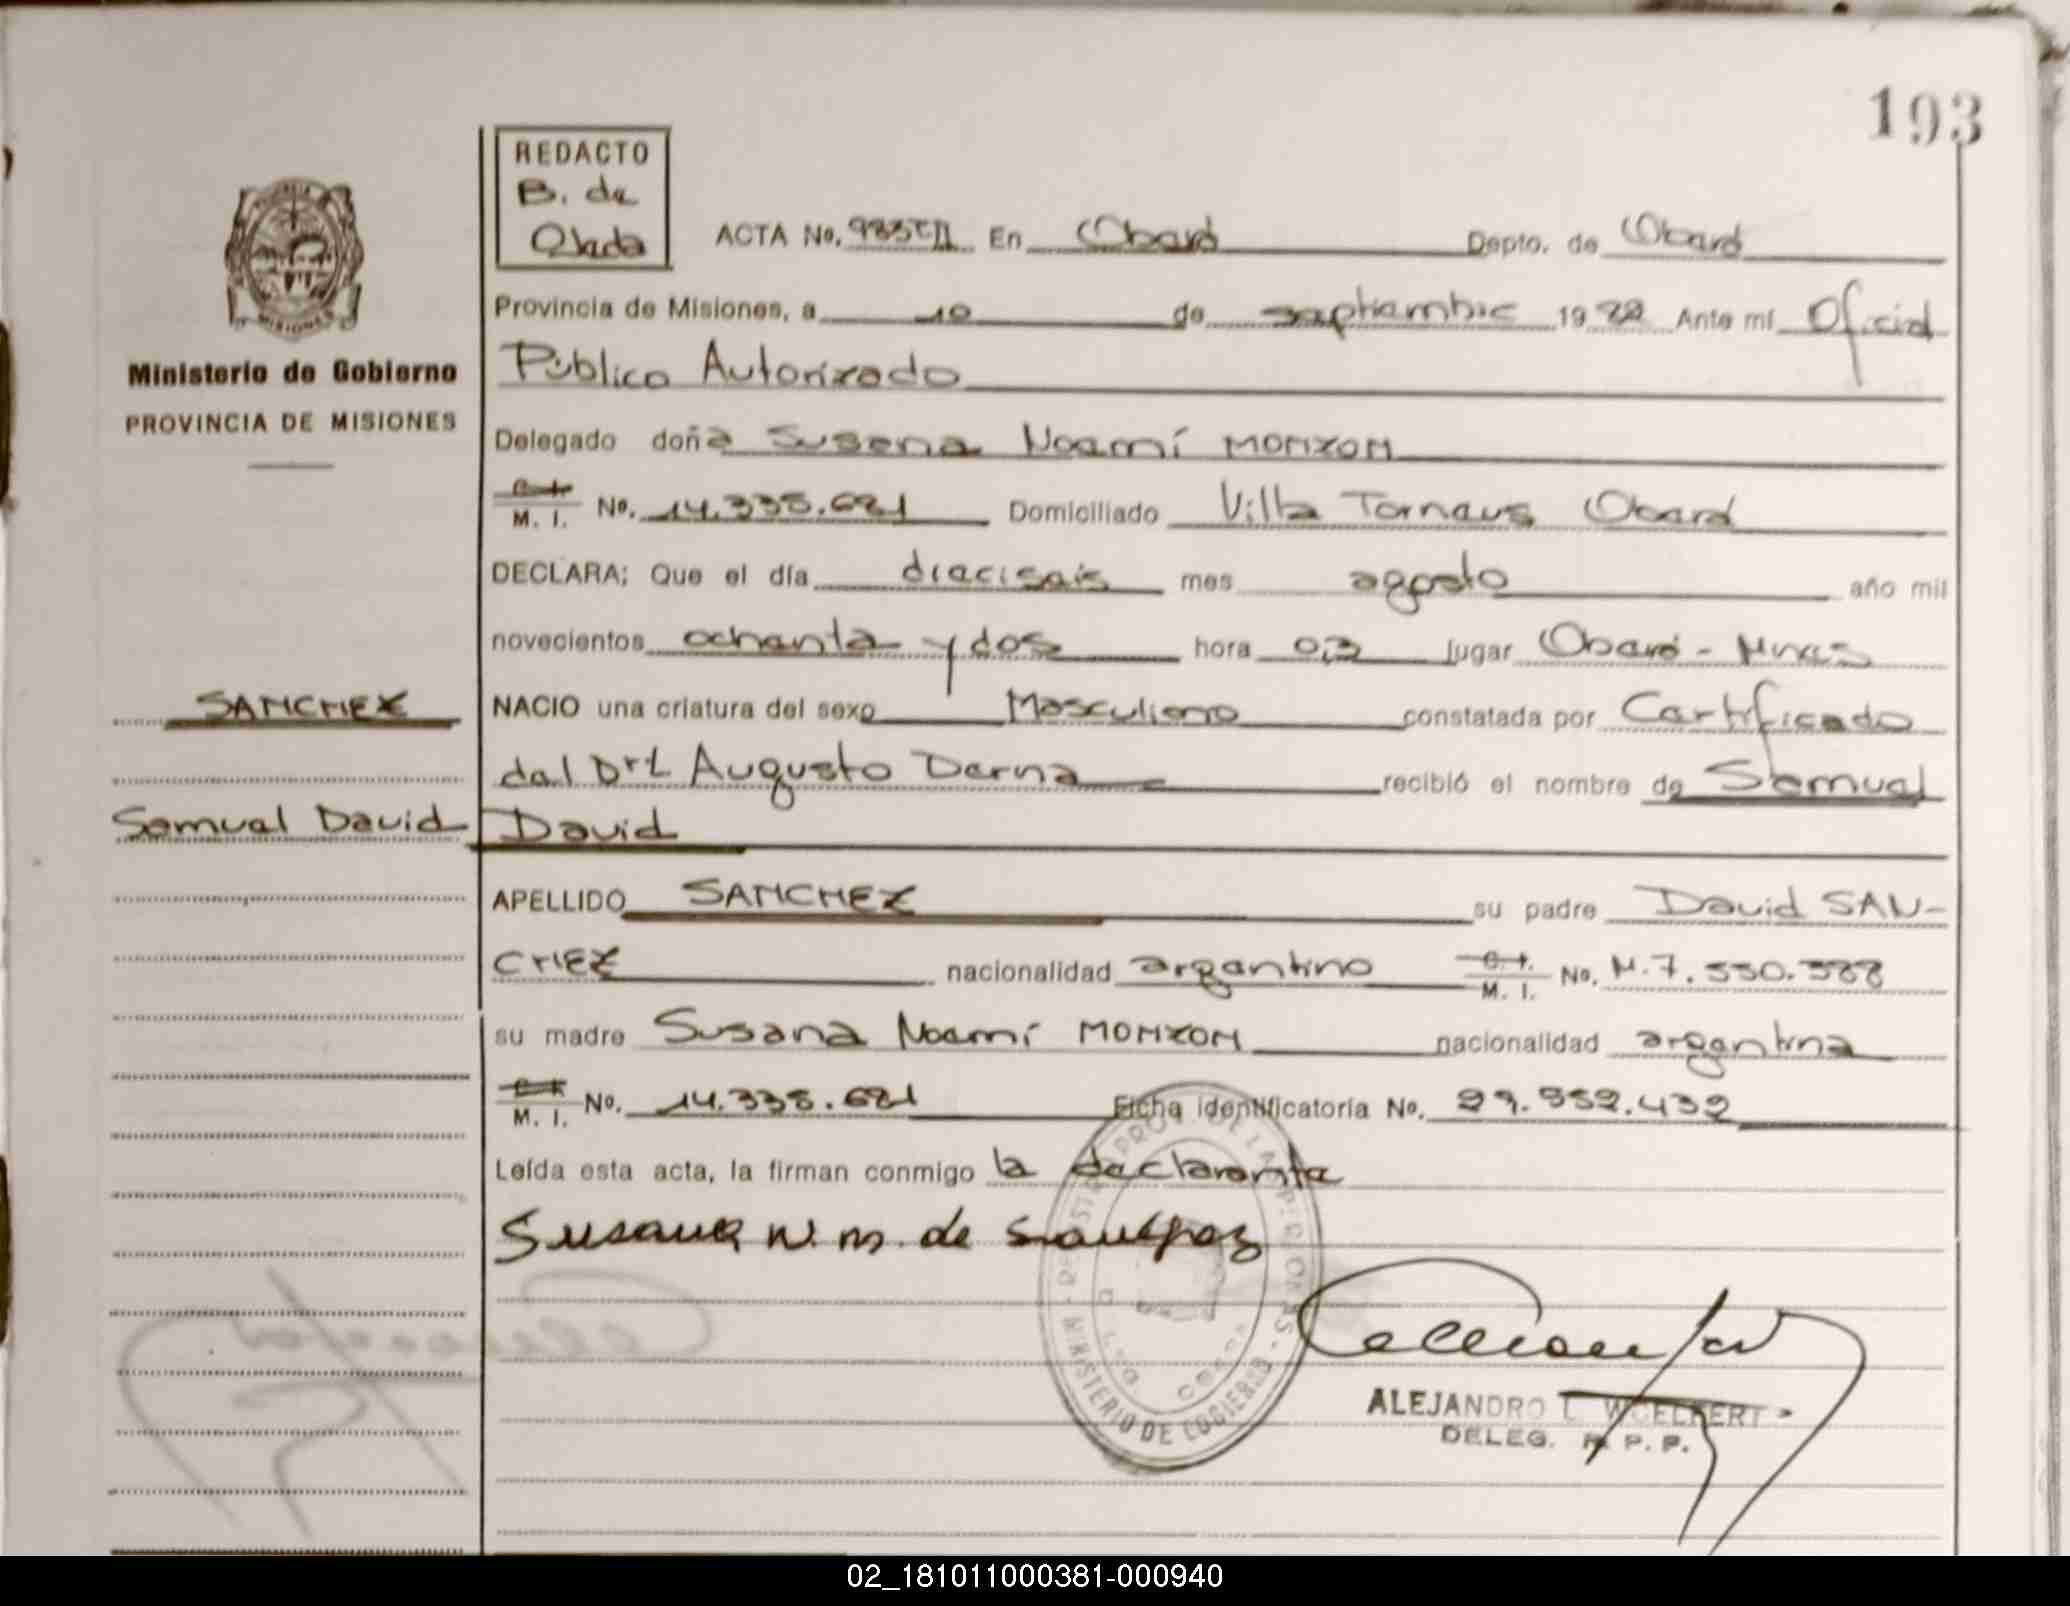 193
REDACTO
B. de
Ojeda
ACTA No. En Oberá Depto. de Oberá
Provincia de Misiones, a 10 de septiembre 1982 Ante mí Oficial
Ministerio de Gobierno
Público Autorizado
PROVINCIA DE MISIONES
Delegado doña Susana Noemí MONZON
M. I. No. 14.338.621 Domiciliado Villa Oberá
DECLARA; Que el día dieciseis mes agosto año mil
novecientos ochenta y dos hora 03 lugar Oberá - Mnes
SANCHEZ
NACIO una criatura del sexo Masculino constatada por Certificado
del Augusto recibió el nombre de Samuel
Samuel David
David
APELLIDO SANCHEZ su padre David SAN-
CHEZ nacionalidad argentino M. I. No. M.7.550.388
su madre Susana Noemí MONZON nacionalidad argentina
M. I. No. 14.338.621 Ficha identificatoria No. 29.552.432
Leída esta acta, la firman conmigo la declarante
Susana N. M. de Sanchez
REGISTRO PROV. DE LAS PERSONAS
MINISTERIO DE GOBIERNO
ALEJANDRO L. WOELFERT
DELEG. R. P. P.
02_181011000381-000940